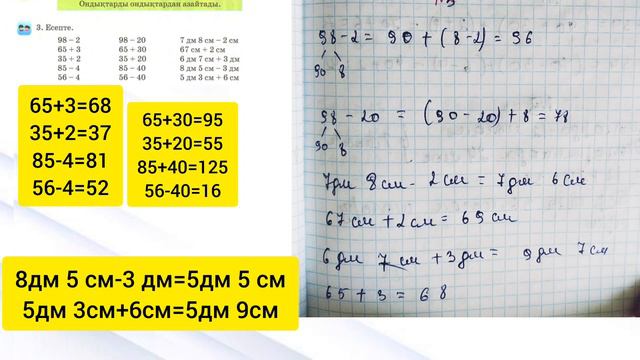 Ондықтарды ондықтардан азайтады.
3. Есепте.
98 – 2 98 – 20 7 дм 8 см – 2 см
65 + 3 65 + 30 67 см + 2 см
35 + 2 35 + 20 6 дм 7 см + 3 дм
85 – 4 85 – 40 8 дм 5 см – 3 дм
56 – 4 56 – 40 5 дм 3 см + 6 см
65+3=68
35+2=37
85-4=81
56-4=52
65+30=95
35+20=55
85+40=125
56-40=16
8дм 5 см-3 дм=5дм 5 см
5дм 3см+6см=5дм 9см
98 - 2 = 90 + (8 - 2) = 96
90 8
98 - 20 = (90 - 20) + 8 = 78
90 8
7дм 8см - 2см = 7дм 6см
67см + 2см = 69см
6дм 7см + 3дм = 9дм 7см
65 + 3 = 68